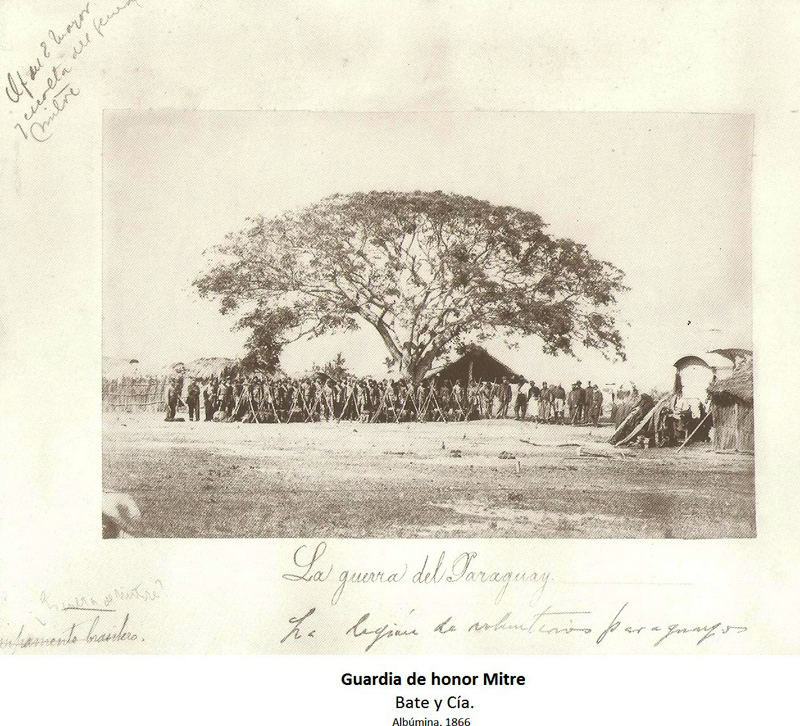 del
y escolta del general
Mitre
La guerra del Paraguay.
campamento brasilero.
La legión de voluntarios paraguayos
Guardia de honor Mitre
Bate y Cía.
Albúmina. 1866